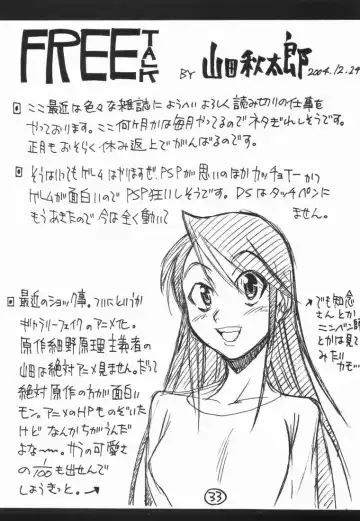 FREE TALK
BY 山田秋太郎 2004.12.24
ここ最近は色々な雑誌にようへいよろしく読み切りの仕事を
やっております。ここ何ヶ月かは毎月やってるのでネタぎれしそうです。
正月もおそらく休み返上でがんばるのです。
そうはいってもゲームはやりますぜ。PSPが思いのほかカッチョイーかつ
ゲームが面白いのでPSP狂いしそうです。DSはタッチペンに
もうあきたので今は全く動いて
ません。
最近のショック事。ついにというか
ギャラリーフェイクのアニメ化。
原作細野原理主義者の
山田は絶対アニメ見ません。だって
絶対原作の方が面白い
モン。アニメのHPものぞいた
けどなんかちがうんだ
よな〜。サラの可愛さ
の1/100も出せんで
しょうきっと。
でも知念
さんとか
ニンベン師
とかは見て
みだい
カモ…
33